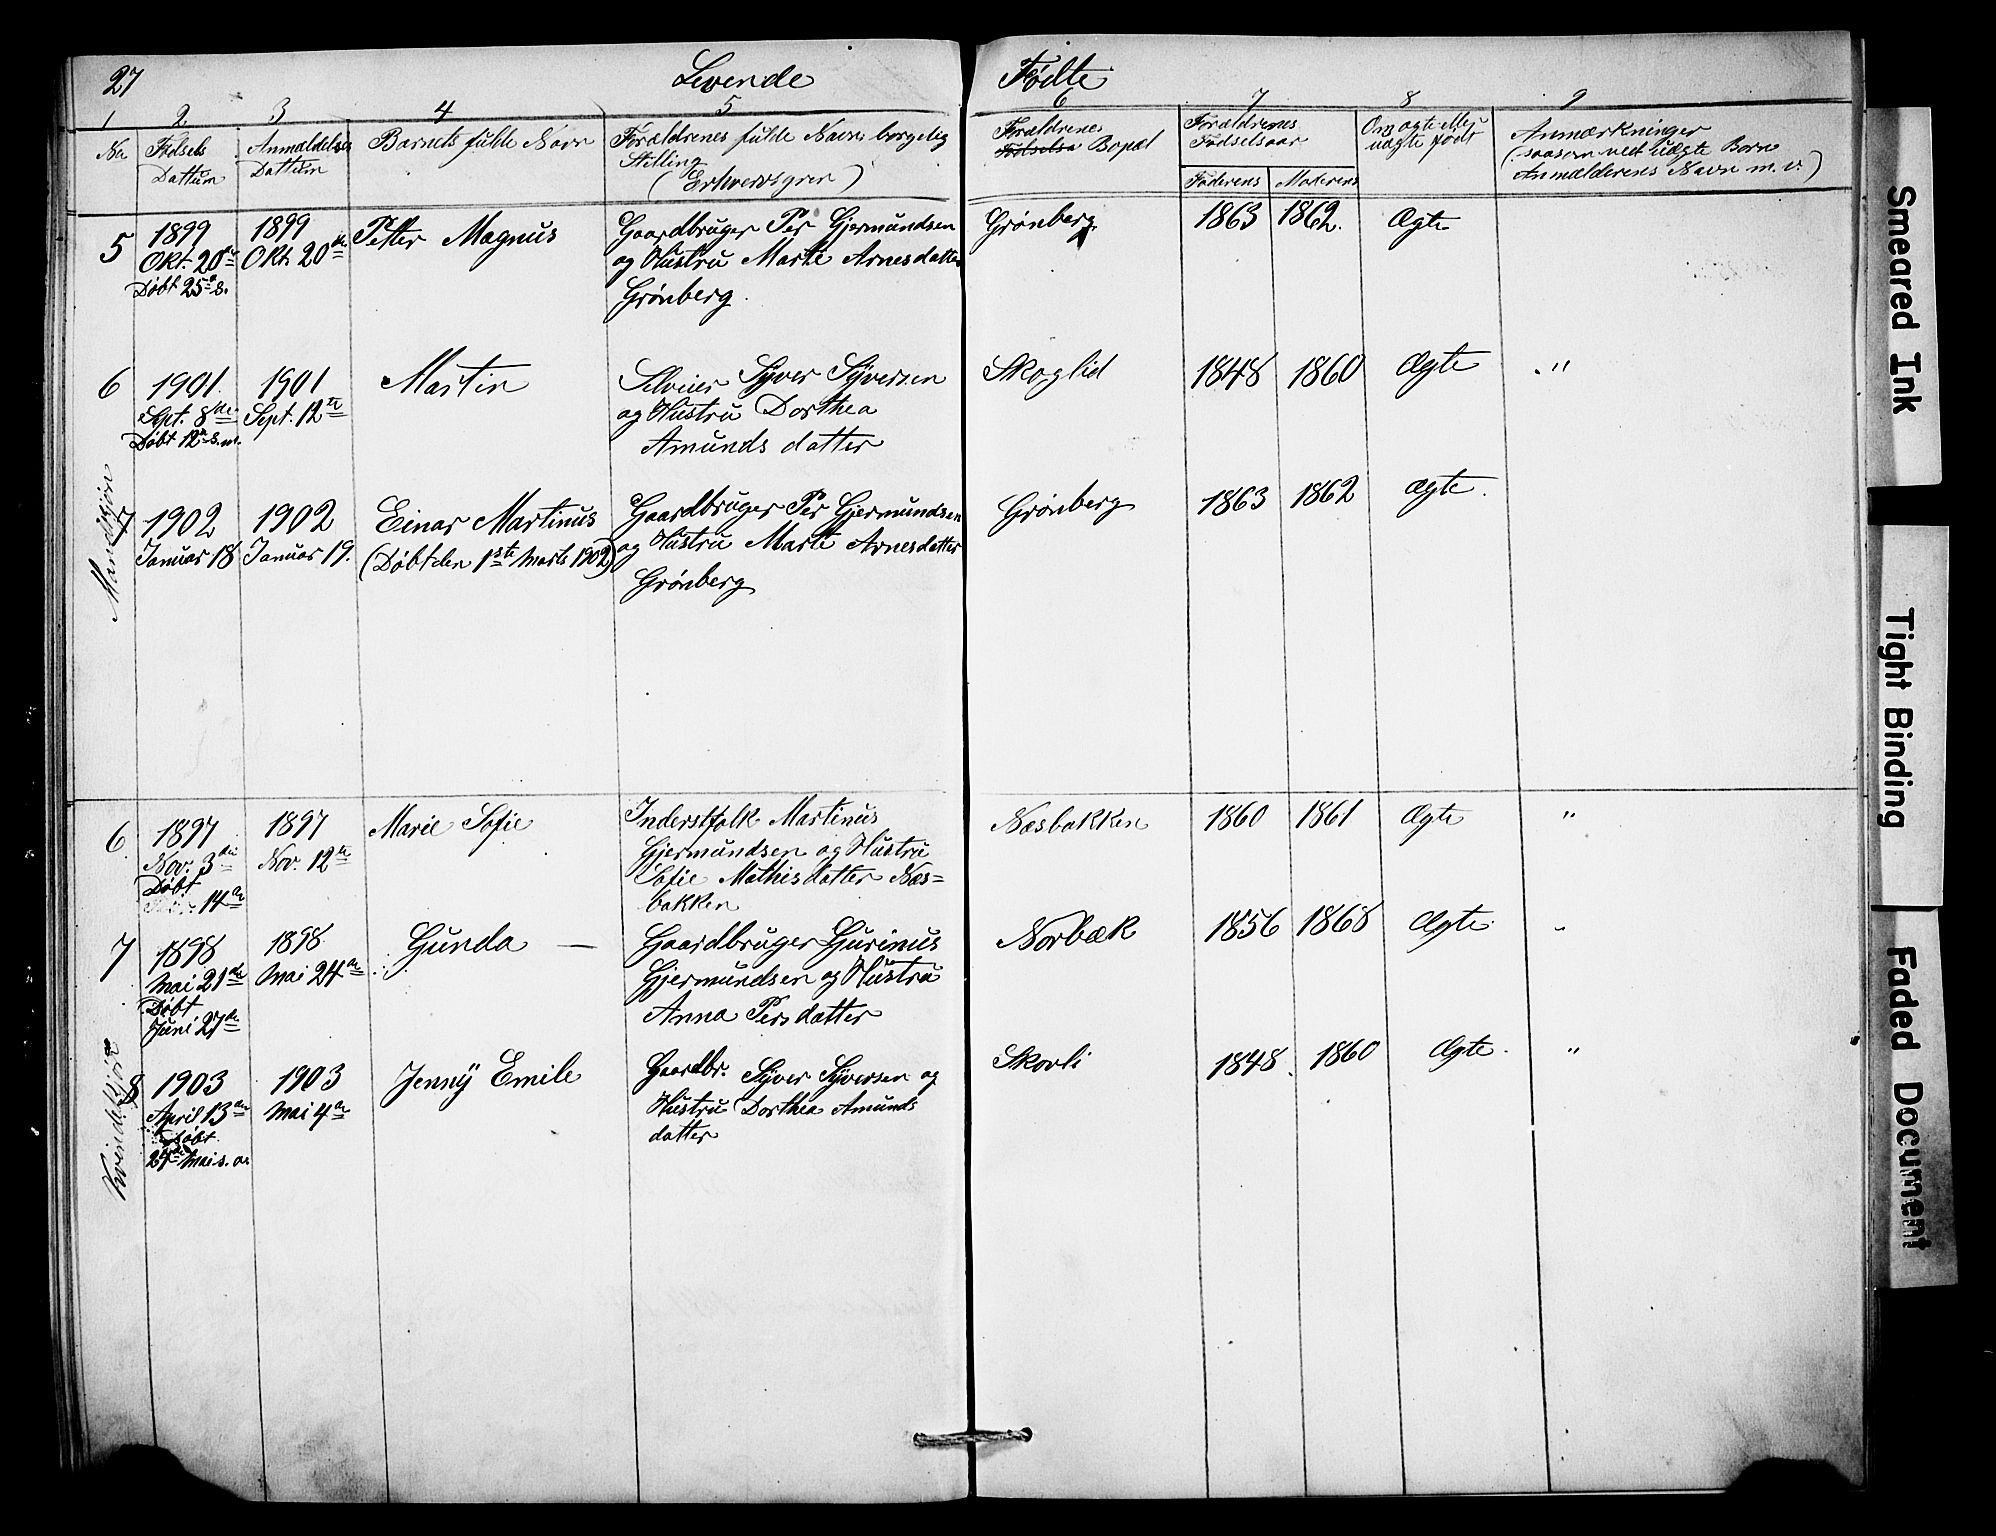 27 Levende Fødte
1 2 3 4 5 6 7 8 9
No Fødsels Dattum Anmældelses Dattum Barnets fulde Navn Forældrenes fulde Navn borgelig Stilling (Erhvervsgren) Forældrenes Bopæl Forældrenes Fødselsaar Faderens Moderens Om ægte eller uægte født Anmærkninger (saasom ved uægte Børn Anmælderens Navn m. v.)
Mandkjøn
5 1899 1899 Petter Magnus Gaardbruger Per Gjermundsen Grønberg 1863 1862. Ægte
Okt. 20de Okt. 20de og Hustru Marte Arnesdatter
Døbt 25de s. Grønberg.
6 1901. 1901 Martin Selveier Syver Syversen Skoglid 1848 1860 Ægte "
Sept. 8de Sept. 12te og Hustru Dorthea
Døbt 12te s. m. Amundsdatter
7 1902 1902 Einar Martinus Gaardbruger Per Gjermundsen Grønberg 1863 1862 ægte.
Januar 18 Januar 19. (Døbt den 1ste Marts 1902) og Hustru Marte Arnesdatter
Grønberg
Kvindekjøn
6 1897 1897 Marie Sofie Inderstfolk Martinus Næsbakken 1860 1861 Ægte "
Nov. 3die Nov. 12te Gjermundsen og Hustru
Døbt Sofie Mathisdatter Næs=
14de bakken
7 1898 1898 Gunda — Gaardbruger Gurinus Norbæk 1856 1868 Ægte "
Mai 21de Mai 24de Gjermundsen og Hustru
Døbt Anna Persdatter
Juni 27de
8 1903 1903 Jenny Emile Gaardbr. Syver Syversen og Skovli 1848. 1860 Ægte. "
April 13de Mai 4de Hustru Dorthea Amunds
Døbt datter
24de Mai s. a.
Smeared Ink
Tight Binding
Faded Document